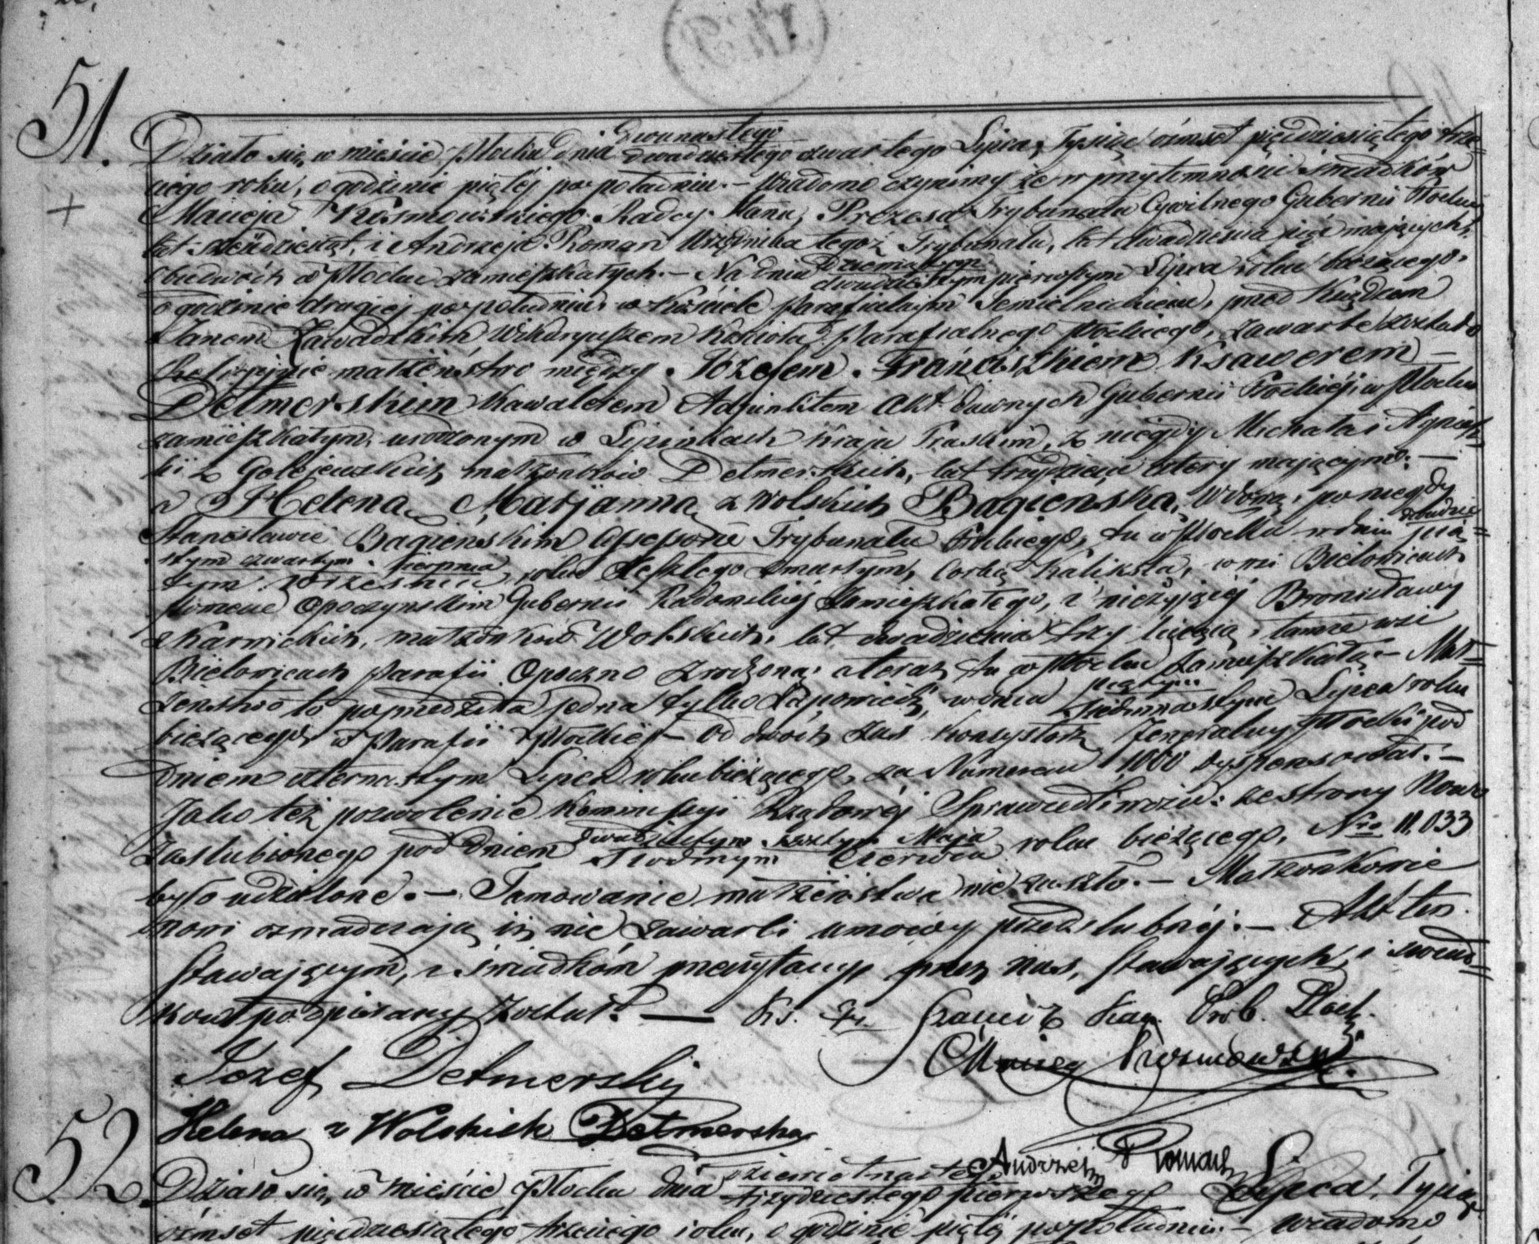 51.
Działo się w mieście Płocku dnia dwunastego
dwudziestego czwartego Lipca, Tysiąc ośmset pięćdziesiątego trze=
ciego roku, o godzinie piątéj po południu. – Wiadomo czynimy że w przytomności świadków
Macieja Kosmowskiego Radcy Stanu, Prezesa Trybunału Cywilnego Gubernii Płockiéj
lat i Andrzeja Roman Urzędnika tegoż Trybunału, lat mających,
obudwóch w Płocku zamieszkałych. – Na dniu dziewiątym
dwudziestym pierwszym Lipca roku bieżącego
o godzinie drugiéj po południu w Kościele Parafialnym Imielnickim, przed Księdzem
Janem Zawadzkim Wikaryuszem Kościoła Parafialnego Płockiego, zawarte zostało
Religijnie małżeństwo między Józefem Franciszkiem Ksawerem –
Detmerskim Kawalerem Adjunktem Akt dawnych Gubernii Płockiéj, w Płocku
zamieszkałym, urodzonym w Lipinkach Kraju Pruskim, z niegdy Michała i Agniesz=
ki z Golejewskich małżonków Detmerskich, lat trzydzieści cztery mającym. –
a Heleną Marjanną z Wolskich Bagieńską, Wdową, po niegdy
Stanisławie Bagieńskim Assesorze Trybunału Płockiego, tu w Płocku w dniu dwudzie=
stym czwartym Sierpnia
tym Września roku zeszłego zmarłym, Córką Kaliksta, w wsi Bielowicach
Powiecie Opoczyńskim Gubernii Radomskiéj zamieszkałego, i nieżyjącéj Bronisławy
z Karnickich, małżonków Wolskich, lat dwadzieścia trzy liczącą, tamże w wsi
Bielowicach Parafii Opoczno zrodzoną, a teraz tu w Płocku zamieszkałą. – Mał=
żeństwo to poprzedziła jedna tylko zapowiedź, w dniu piątym
siedmnastym Lipca roku
bieżącego w Parafii Płockiéj – Od dwóch zaś Konsystorz Jeneralny Płocki pod
dniem czternastym Lipca roku bieżącego, za Numerem 1000 dyspensował. –
Jako téż pozwolenie Kommissyi Rządowéj Sprawiedliwości ze strony Nowo
zaślubionego pod dniem dwudziestym szóstym Maja
siódmym Czerwca roku bieżącego, Nro 11.033
było udzielone. – Tamowanie małżeństwa nie zaszło. – Małżonkowie
nowi oznadczają iż nie zawarli umowy przedślubnéj. – Akt ten
stawającym, i świadkom przeczytany przez nas, stawających, i świad=
ków podpisany został. — Ks. Kan. Prob. Płock.
Józef Detmerski
Maciej Kosmowski
Helena z Wolskich Detmerska
Andrzej Roman
52.
Działo się w mieście Płocku dnia dziewiętnastego
trzydziestego pierwszego Lipca, Tysiąc
ośmset pięćdziesiątego trzeciego roku, o godzinie piątéj po południu. – Wiadomo